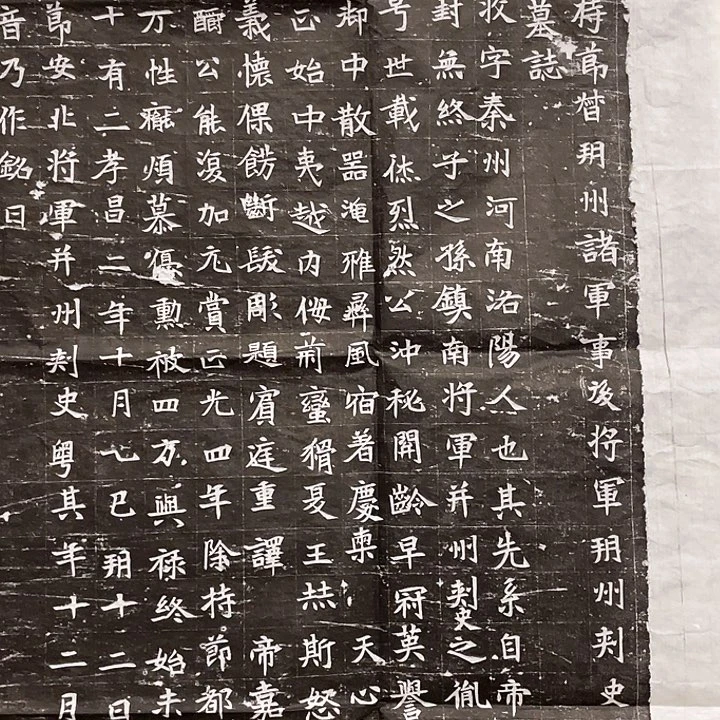 持節督朔州諸軍事後將軍朔州刺史
墓誌
字秦州河南洛陽人也其先系自帝
封無終子之孫鎮南將軍并州刺史之胤
号世載休烈然公沖秘開齡早冠英譽
御中散器淹雅彝風宿著慶 天心
正始中夷越內侮荊蠻猾夏王赫斯怒
義懷倮飭斷髮彫題賓庭重譯 帝嘉
酬公能復加元賞正光四年除持節都
万性煩慕俱勳被四方與祿終始未
十有二孝昌二年十月乙巳朔十二日
節安北將軍并州刺史粤其年十二月
音乃作銘曰